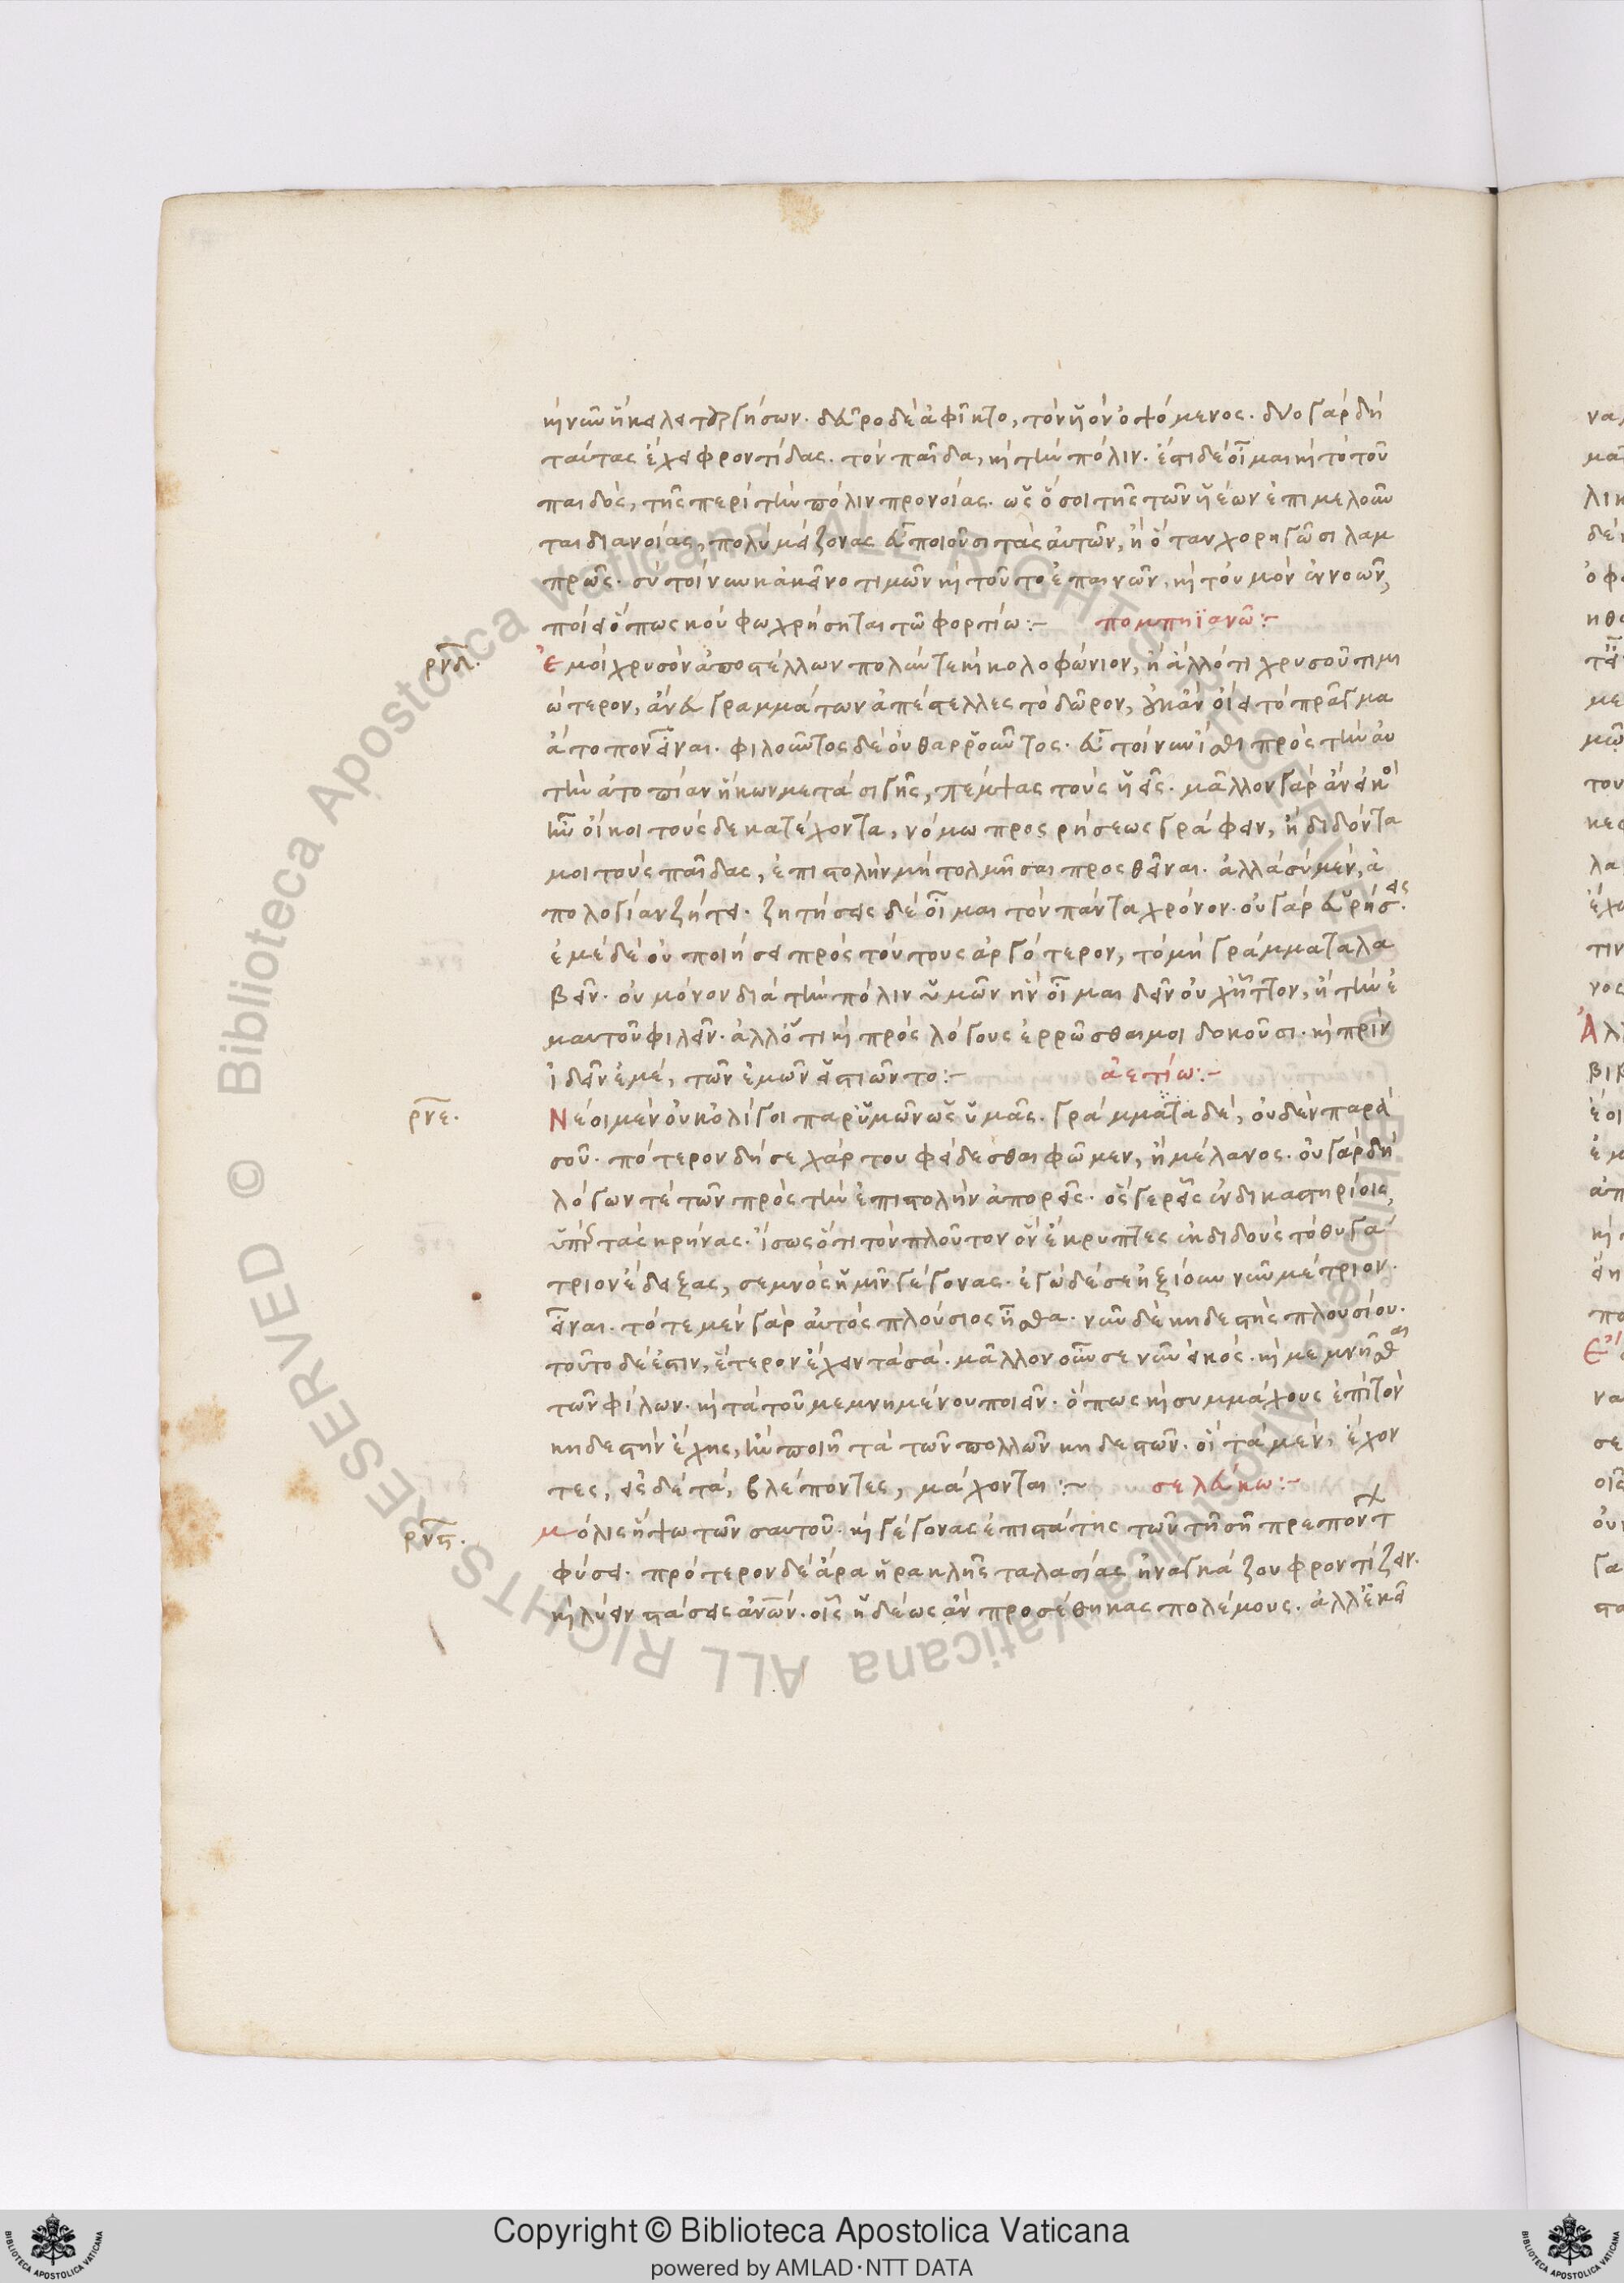 καὶ νῦν ἥκει λειτουργήσων. δεῦρο δὲ ἀφῖκτο, τὸν υἱὸν ὀψόμενος. δύο γὰρ δὴ
ταύτας ἔχει φροντίδας. τὸν παῖδα, καὶ τὴν πόλιν. ἔστι δὲ οἶμαι καὶ τὸ τοῦ
παιδὸς, τῆς περὶ τὴν πόλιν προνοίας. ὡς ὅσοι τῆς τῶν υἱέων ἐπιμελοῦν
ται διανοίας, πολὺ μείζονας εὖ ποιοῦσι τὰς αὑτῶν, ἢ ὅταν χορηγῶσι λαμ
πρῶς. σὺ τοίνυν κἀκεῖνο τιμῶν καὶ τοῦτο ἐπαινῶν, καὶ τὸν μὸν ἐννοῶν,
ποίει ὅπως κούφω χρήσηται τῶ φορτίω:~ πομπηϊανῶ:~
ρνδ. Ἐμοὶ χρυσὸν ἀποστέλλων πολύν τε καὶ κολοφώνιον, ἢ ἄλλό τι χρυσοῦ τιμι
ώτερον, ἄνευ γραμμάτων ἀπέστελλες τὸ δῶρον, οὐκ ἂν οἵει τὸ πρᾶγμα
ἄτοπον εἶναι. φιλοῦντος δὲ οὐ θαρροῦντος. εὖ τοίνυν ἴσθι πρὸς τὴν αὐ
τὴν ἀτοπίαν ἥκων μετὰ σιγῆς, πέμψας τοὺς υἱεῖς. μᾶλλον γὰρ ἂν εἰκὸ
ἦν οἴκοι τούσδε κατέχοντα, νόμω προσρήσεως γράφειν, ἢ διδόντα
μοι τοὺς παῖδας, ἐπιστολὴν μὴ τολμῆσαι προσθεῖναι. ἀλλὰ σὺ μὲν, ἀ
πολογίαν ζήτει. ζητήσεις δὲ οἶμαι τὸν πάντα χρόνον. οὐ γὰρ εὑρήσεις.
ἐμὲ δὲ οὐ ποιήσει πρὸς τούτους ἀργότερον, τὸ μὴ γράμματα λα
βεῖν. οὐ μόνον διὰ τὴν πόλιν ὑμῶν ἣν οἶμαι δεῖν οὐχ ἧττον, ἢ τὴν ἐ
μαυτοῦ φιλεῖν. ἀλλ' ὅτι καὶ πρὸς λόγους ἐρρῶσθαι μοι δοκοῦσι. καὶ πρὶν
ἰδεῖν ἐμέ, τῶν ἐμῶν εἱστιῶντο:~ ἀετίω:~
ρνε. Νέοι μὲν οὐκ ὀλίγοι παρ' ὑμῶν ὡς ὑμᾶς. γράμματα δέ, οὐδὲν παρὰ
σοῦ. πότερον δή σε χάρτου φείδεσθαι φῶμεν, ἢ μέλανος. οὐ γὰρ δὴ
λόγων τὲ τῶν πρὸς τὴν ἐπιστολὴν ἀπορεῖς. ὅς γε ρεῖς ἐν δικαστηρίοις,
ὑπὲρ τὰς κρήνας. ἴσως ὅτι τὸν πλοῦτον ὃν ἔκρυπτες ἐκδιδοὺς τὸ θυγά
τριον ἔδειξας, σεμνὸς ἡμῖν γέγονας. ἐγὼ δέ σε ἠξίουν νῦν μέτριον.
εἶναι. τότε μὲν γὰρ αὐτὸς πλούσιος ἦσθα. νῦν δὲ κηδεστὴς πλουσίου.
τοῦτο δέ ἐστιν, ἕτερον ἔχειν τὰ σά. μᾶλλον οὖν σε νῦν εἰκός. καὶ μεμνῆσθαι
τῶν φίλων. καὶ τὰ τοῦ μεμνημένου ποιεῖν. ὅπως καὶ συμμάχους ἐπὶ τὸν
κηδεστὴν ἔχης, ἢν ποιῆ τὰ τῶν πολλῶν κηδεστῶν. οἳ τὰ μὲν, ἔχον
τες, εἰς δὲ τά, βλέποντες, μάχονται:~ σελεύκω:~
ρνϛ. Μόλις ἥψω τῶν σαυτοῦ. καὶ γέγονας ἐπιστάτης τῶν τῆ σῆ πρεπόντων
φύσει. πρότερον δὲ ἄρα ἡρακλῆς ταλασίας ἠναγκάζου φροντίζειν.
καὶ λύειν στάσεις ἀνων. οἷς ἡδέως ἂν προσέθηκας πολέμους. ἀλλ' ἐκεῖ